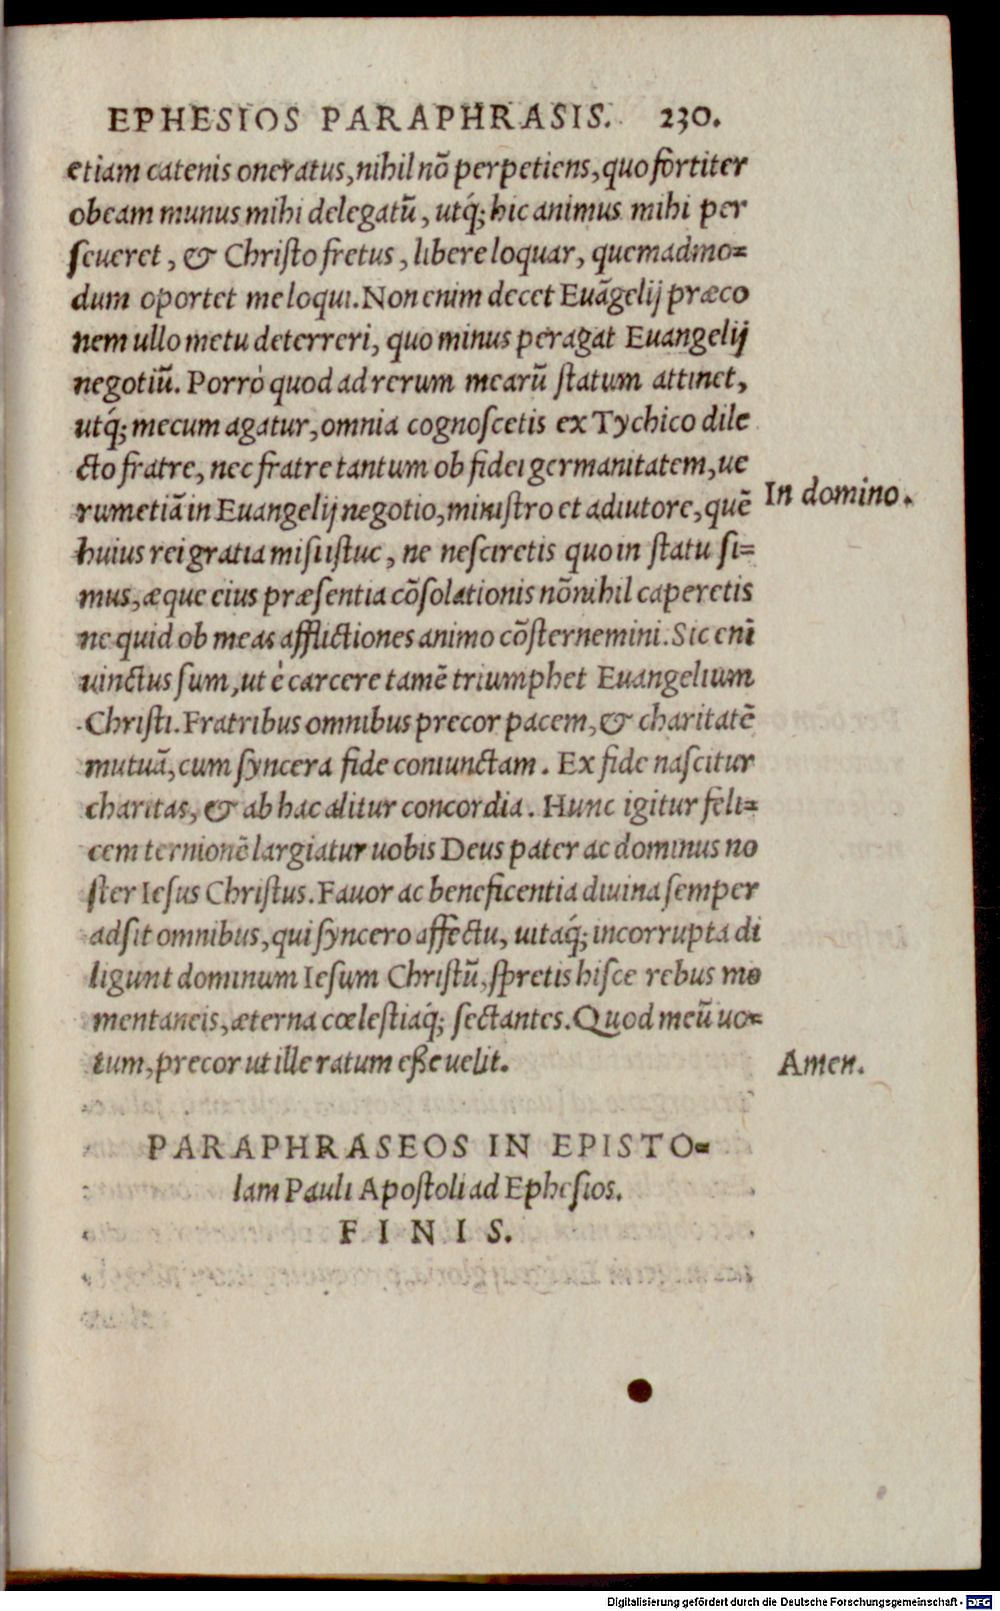 EPHESIOS PARAPHRASIS. 230.
etiam catenis oneratus, nihil nõ perpetiens, quo fortiter
obeam munus mihi delegatũ, utq́; hic animus mihi per
ſeueret, & Chriſto fretus, libere loquar, quemadmo=
dum oportet me loqui. Non enim decet Euãgelij præco
nem ullo metu deterreri, quo minus peragat Euangelij
negotiũ. Porrò quod ad rerum mearũ ſtatum attinet,
utq́; mecum agatur, omnia cognoſcetis ex Tychico dile
cto fratre, nec fratre tantum ob fidei germanitatem, ue
rumetiã in Euangelij negotio, miniſtro et adiutore, quẽ
In domino.
huius rei gratia miſi iſtuc, ne neſciretis quo in ſtatu ſi=
mus, æque eius præſentia cõſolationis nõnihil caperetis
ne quid ob meas afflictiones animo cõſternemini. Sic enĩ
uinctus ſum, ut è carcere tamẽ triumphet Euangelium
Chriſti. Fratribus omnibus precor pacem, & charitatẽ
mutuã, cum ſyncera fide coniunctam. Ex fide naſcitur
charitas, & ab hac alitur concordia. Hunc igitur feli=
cem ternionẽ largiatur uobis Deus pater ac dominus no
ſter Ieſus Chriſtus. Fauor ac beneficentia diuina ſemper
adſit omnibus, qui ſyncero affectu, uitaq́; incorrupta di
ligunt dominum Ieſum Chriſtũ, ſpretis hiſce rebus mo
mentaneis, æterna cœleſtiaq́; ſectantes. Quod meũ uo=
tum, precor ut ille ratum eſſe uelit.
Amen.
PARAPHRASEOS IN EPISTO=
lam Pauli Apoſtoli ad Epheſios.
FINIS.
Digitalisierung gefördert durch die Deutsche Forschungsgemeinschaft - DFG